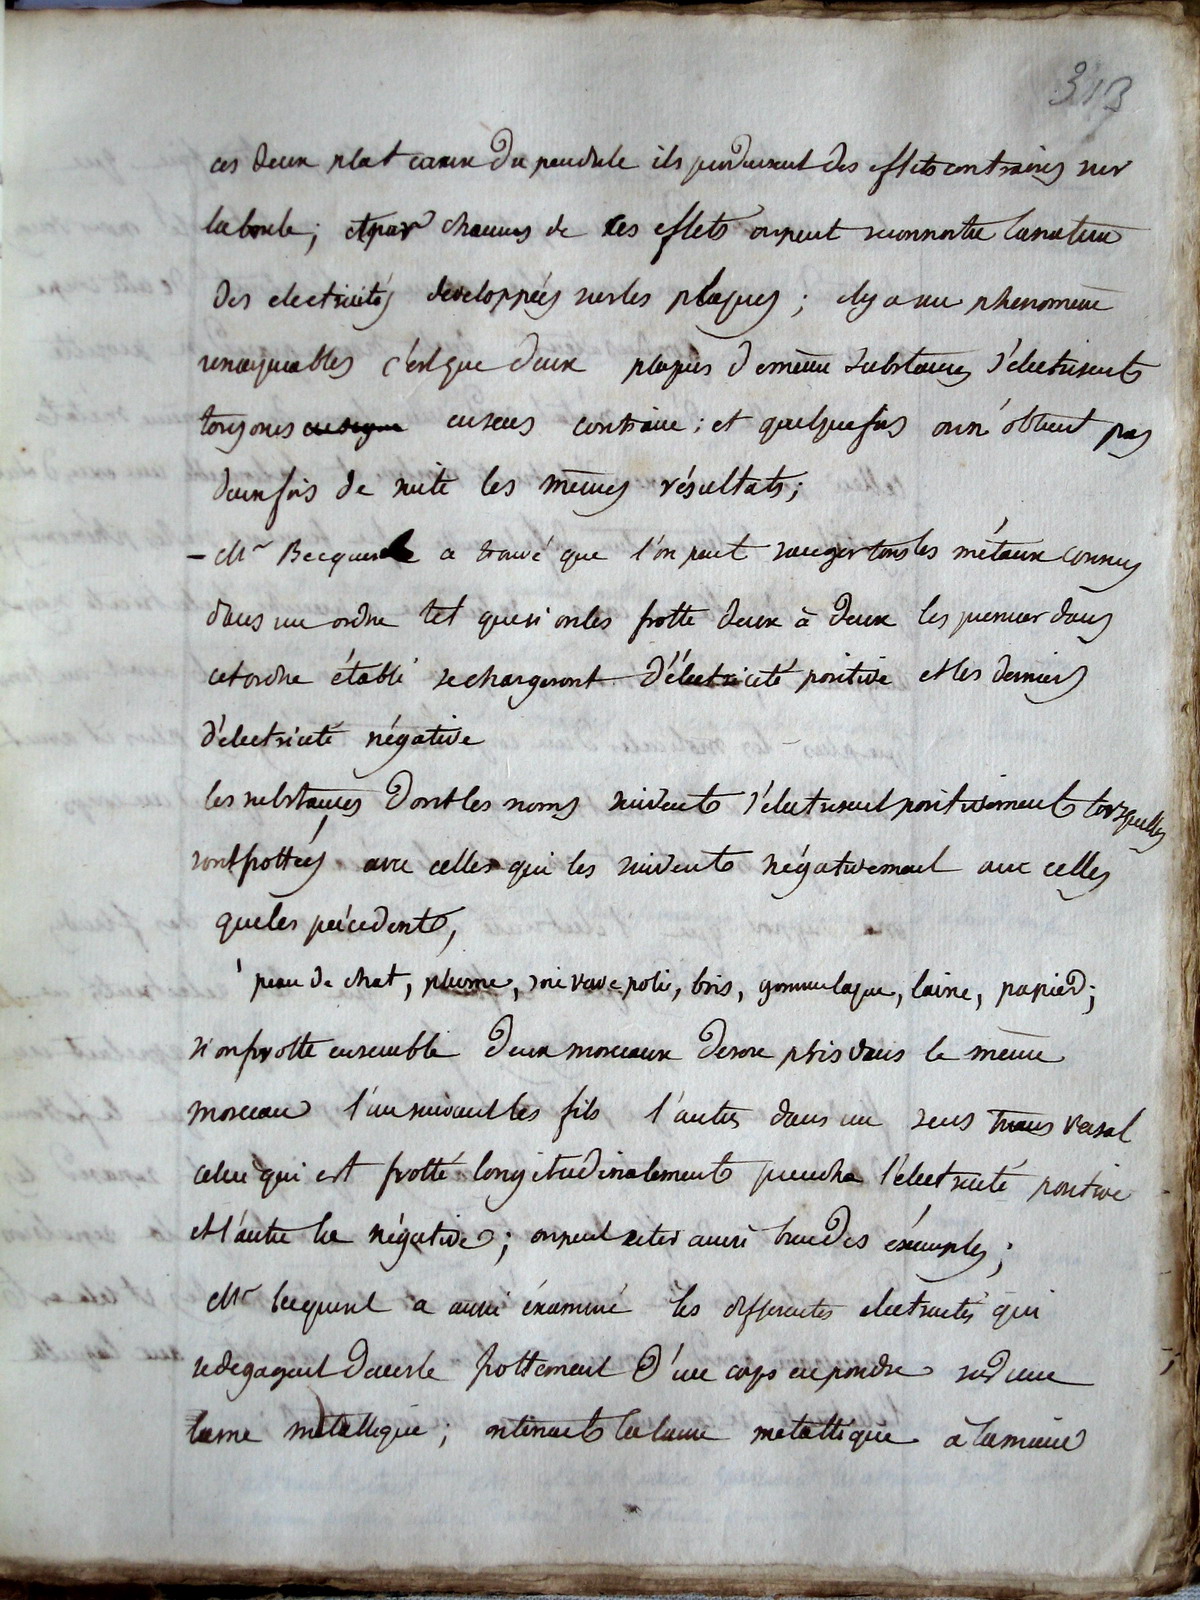 313
ces deux plateaux du pendule ils produisent des effets contraires sur
la boule; et par chacuns de ces effets on peut reconnoitre la nature
des electricités developpées sur les plaques; il y a un phenomene
remarquables c'est que deux plaques de meme substances s'électrisent
toujours en sens contraire; et quelquefois on n'obtient pas
deux fois de suite les mêmes résultats;
– Mr Becquerele a trouvé que l'on peut ranger tous les métaux connus
dans un ordre tel que si on les frotte deux à deux les premier dans
cet ordre établi se chargeront d'électricité positive et les derniers
d'électricité négative
les substances dont les noms suivent s'électrisent positivement lorsquelles
sont frottées avec celles qui les suivent négativement avec celles
que les précedent,
peau de chat, plume, soie verre polie, bois, gomme laque, laine, papier;
si on frotte ensemble deux morceaux de soie pris dans le même
morceau l'un suivant les fils l'autre dans un sens transversal
celui qui est frotté longitudinalement prendra l'électricité positive
et l'autre la négative; on peut citer aussi bien des éxemples;
Mr becquerel a aussi éxaminé les differentes electricités qui
se degagent dans le frottement d'un corps en poudre sur une
lame métallique; on tenant la lame metallique à la main